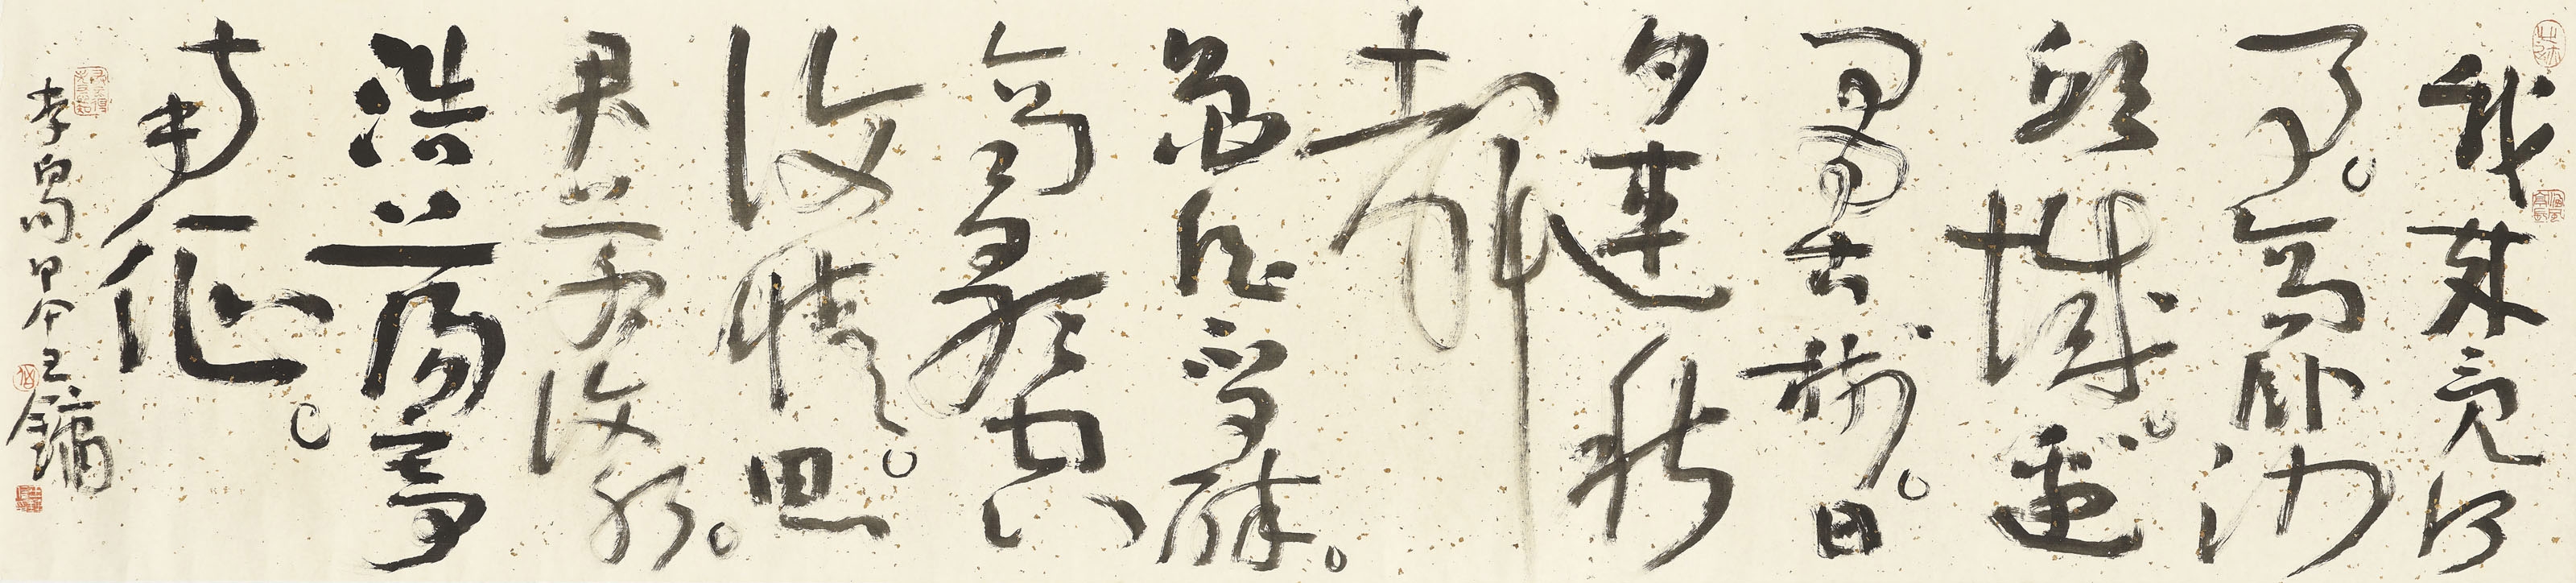 我來竟何
事。高卧沙
邱城。邊
有古樹。日
夕連秋
聲
魯酒不可醉。
齊歌空
復情。思
君若汶水。
浩蕩寄
南征。
李白 甲午 王鏞